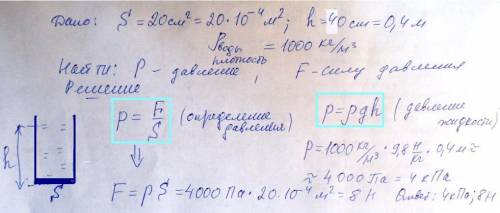 Дано: S = 20 см² = 20·10⁻⁴ м²; h = 40 см = 0,4 м
ρ воды = 1000 кг/м³
плотность
Найти: P - давление, F - силу давления
Решение
p = F/S (определение давления)
p = ρgh (давление жидкости)
p = 1000 кг/м³ · 9,8 Н/кг · 0,4 м ≈
≈ 4000 Па = 4 кПа
h
S
F = pS = 4000 Па · 20·10⁻⁴ м² = 8 Н
Ответ: 4 кПа; 8 Н